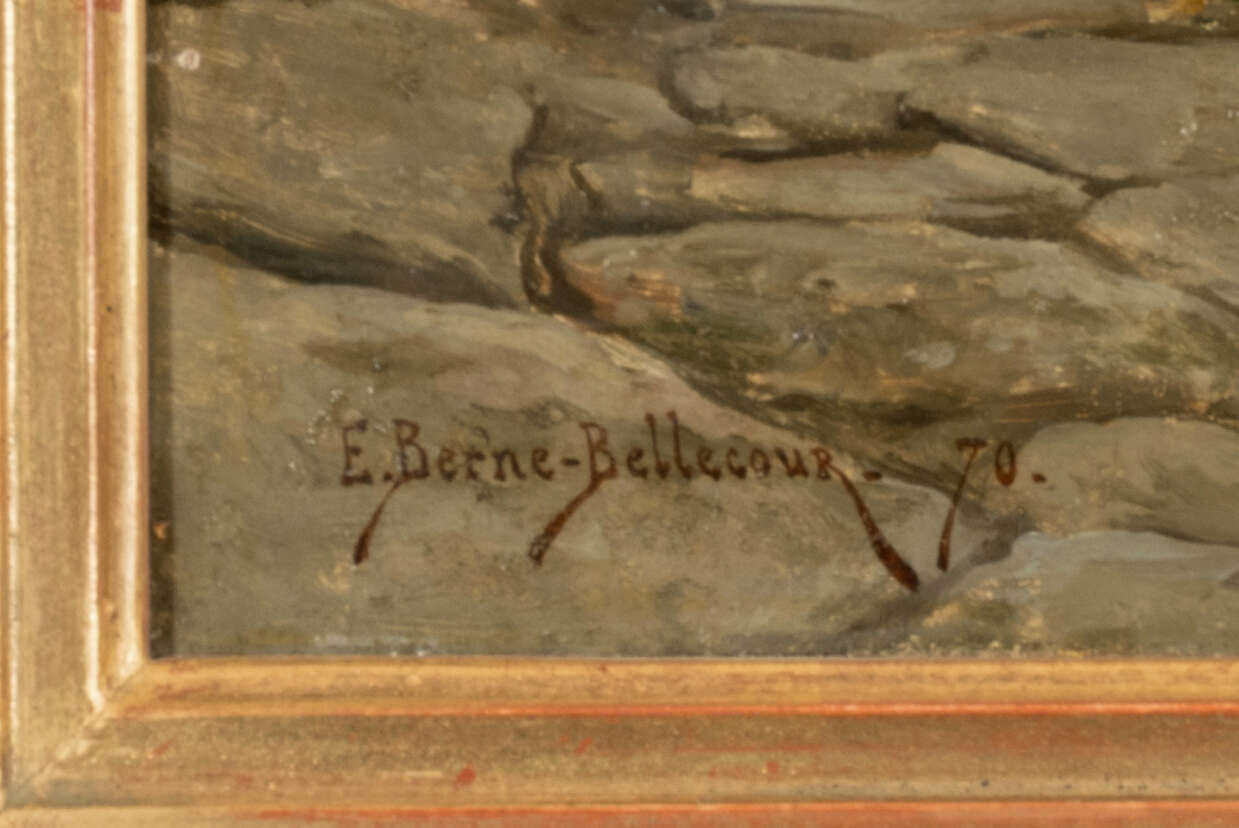 E. Berne-Bellecour. 70.